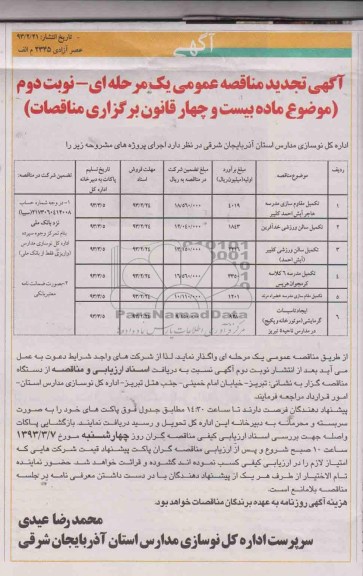 تاریخ انتشار: ۹۳/۲/۲۱
عصر آزادی ۲۳۴۵ م الف
آگهی
آگهی تجدید مناقصه عمومی یک مرحله ای - نوبت دوم
(موضوع ماده بیست و چهار قانون برگزاری مناقصات)
اداره کل نوسازی مدارس استان آذربایجان شرقی در نظر دارد اجرای پروژه های مشروحه زیر را
ردیف موضوع مناقصه مبلغ برآورد اولیه (میلیون ریال) مبلغ تضمین شرکت در مناقصه به ریال مهلت فروش اسناد تاریخ تسلیم پاکات به دبیرخانه اداره کل تضمین شرکت در مناقصه:
۱ تکمیل مقاوم سازی مدرسه هاجر آبش احمد کلیبر ۴۰۱۹ ۹۳/۲/۲۴ ۹۳/۳/۵
۲ تکمیل سالن ورزشی خداآفرین ۱۸۴۳ ۹۳/۲/۲۴ ۹۳/۳/۵
۳ تکمیل سالن ورزشی کلیبر (آبش احمد) ۹۳/۲/۲۴ ۹۳/۳/۵
۴ تکمیل مدرسه ۶ کلاسه ۹۳/۳/۵
۵ تکمیل مقاوم سازی مدرسه ۱۲۰۱ ۹۳/۳/۵
۶ ایجاد تاسیسات گرمایشی (موتورخانه و پکیج) در مدارس ناحیه ۵ تبریز ۹۳/۳/۵
۱- در وجه شماره حساب
نزد بانک ملی
بنام تمرکز وجوه سپرده
اداره کل نوسازی مدارس
(واریزی فقط از بانک ملی)
۲- بصورت ضمانت نامه
معتبر بانکی
از طریق مناقصه عمومی یک مرحله ای واگذار نماید. لذا از شرکت های واجد شرایط دعوت به عمل
می آید بعد از انتشار نوبت دوم آگهی نسبت به دریافت اسناد ارزیابی و مناقصه از دستگاه
مناقصه گزار به نشانی: تبریز- خیابان امام خمینی- جنب هتل تبریز- اداره کل نوسازی مدارس استان-
امور قرارداد مراجعه فرمایند.
پیشنهاد دهندگان فرصت دارند تا ساعت ۱۴:۳۰ مطابق جدول فوق پاکت های خود را به صورت
سربسته و محرمانه به دبیرخانه این اداره کل تحویل و رسید دریافت نمایند. بازگشایی پاکات
واصله جهت بررسی اسناد ارزیابی کیفی مناقصه گران روز چهارشنبه مورخ ۱۳۹۳/۳/۷
ساعت ۱۰ صبح شروع و پس از ارزیابی مناقصه گران پاکت پیشنهاد قیمت شرکت هایی که
امتیاز لازم را در ارزیابی کیفی کسب نموده اند گشوده و قرائت خواهد شد. حضور نماینده
تام الاختیار از طرف هر یک از پیشنهاد دهندگان با در دست داشتن معرفی نامه در جلسه
مناقصه بلامانع است.
هزینه آگهی روزنامه به عهده برندگان مناقصات خواهد بود.
محمدرضا عیدی
سرپرست اداره کل نوسازی مدارس استان آذربایجان شرقی